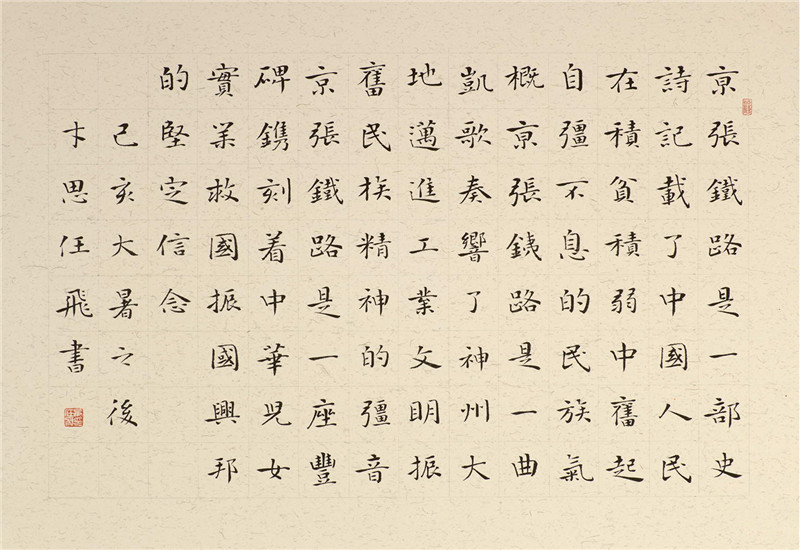 亰張鐵路是一部史
詩記載了中國人民
在積貧積弱中舊起
自彊不息的民族氣
概亰張銕路是一曲
凱歌奏響了神州大
地邁進工業文明振
舊民族精神的彊音
京張鐵路是一座豐
碑鐫刻着中華兒女
實業救國振國興邦
的堅定信念
己亥大暑之後
卞思任飛書